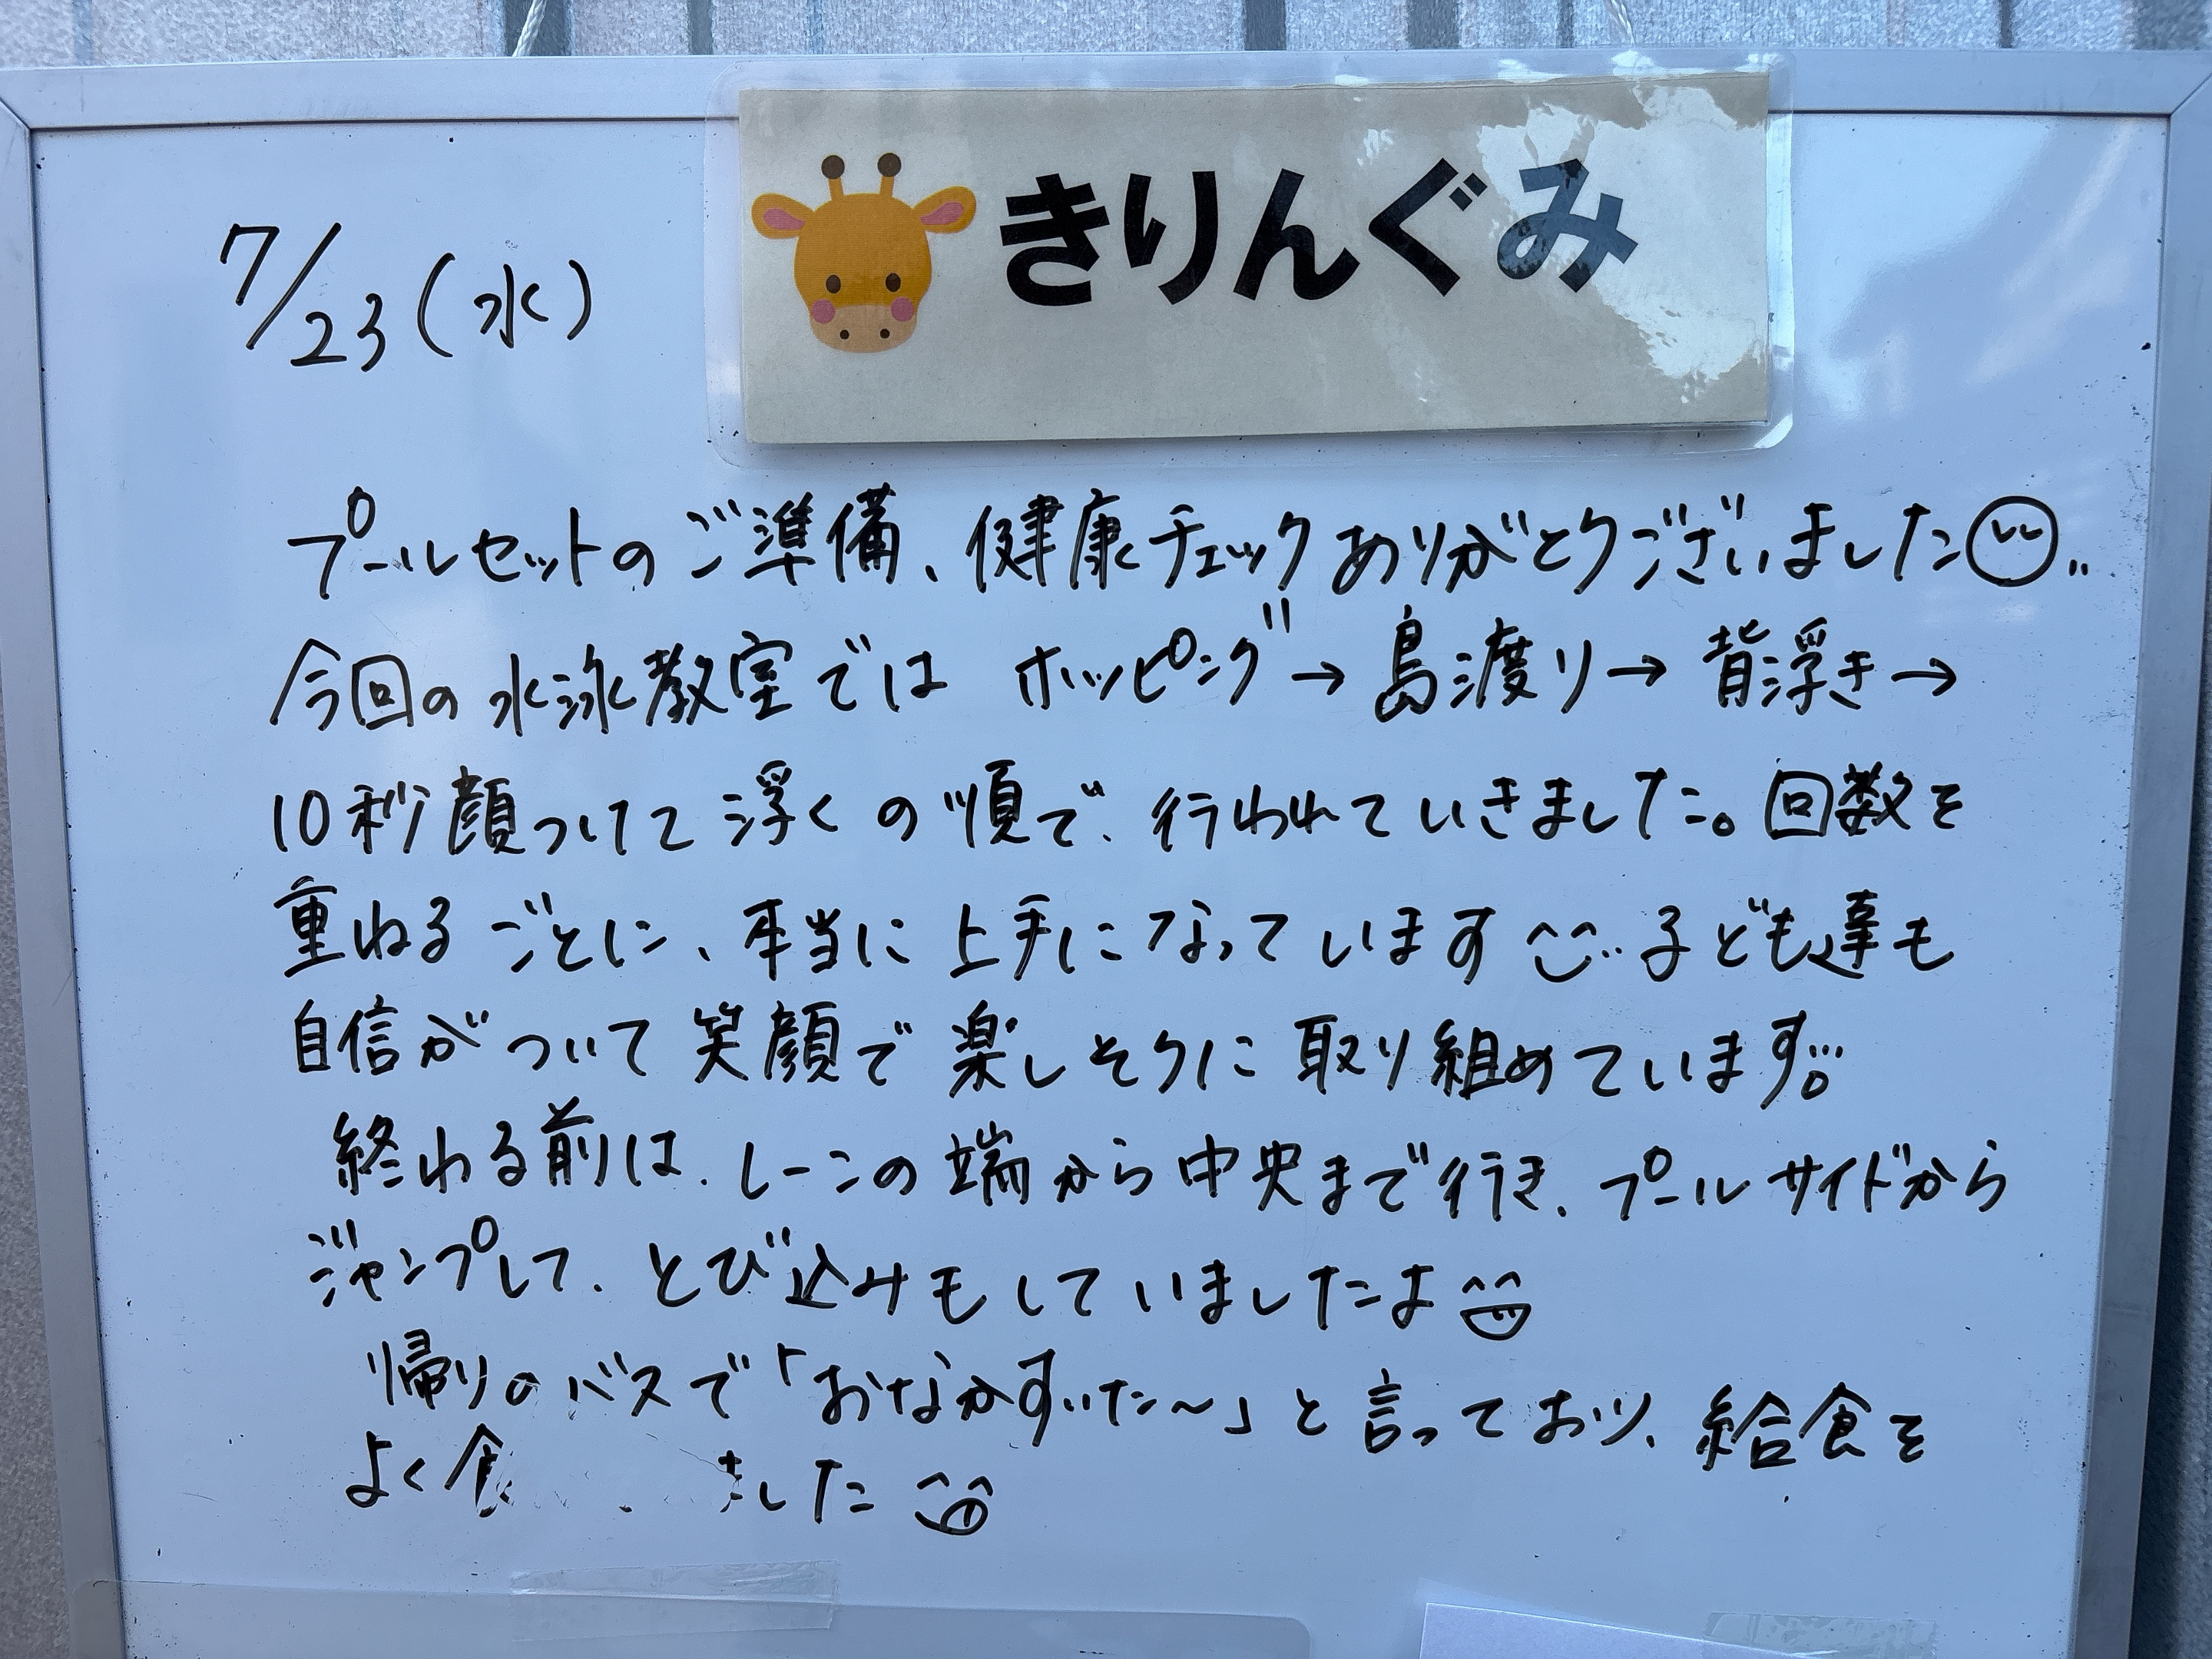 きりんぐみ
7/23(水)
プールセットのご準備、健康チェックありがとうございました
今回の水泳教室では ホッピング→島渡り→背浮き→
10秒顔つけて浮くの順で、行われていきました。回数を
重ねるごとに、本当に上手になっています 子ども達も
自信がついて笑顔で楽しそうに取り組めています。
終わる前は、レーンの端から中央まで行き、プールサイドから
ジャンプして、とび込みもしていましたよ
帰りのバスで「おなかすいた〜」と言っており、給食を
よく食 ました